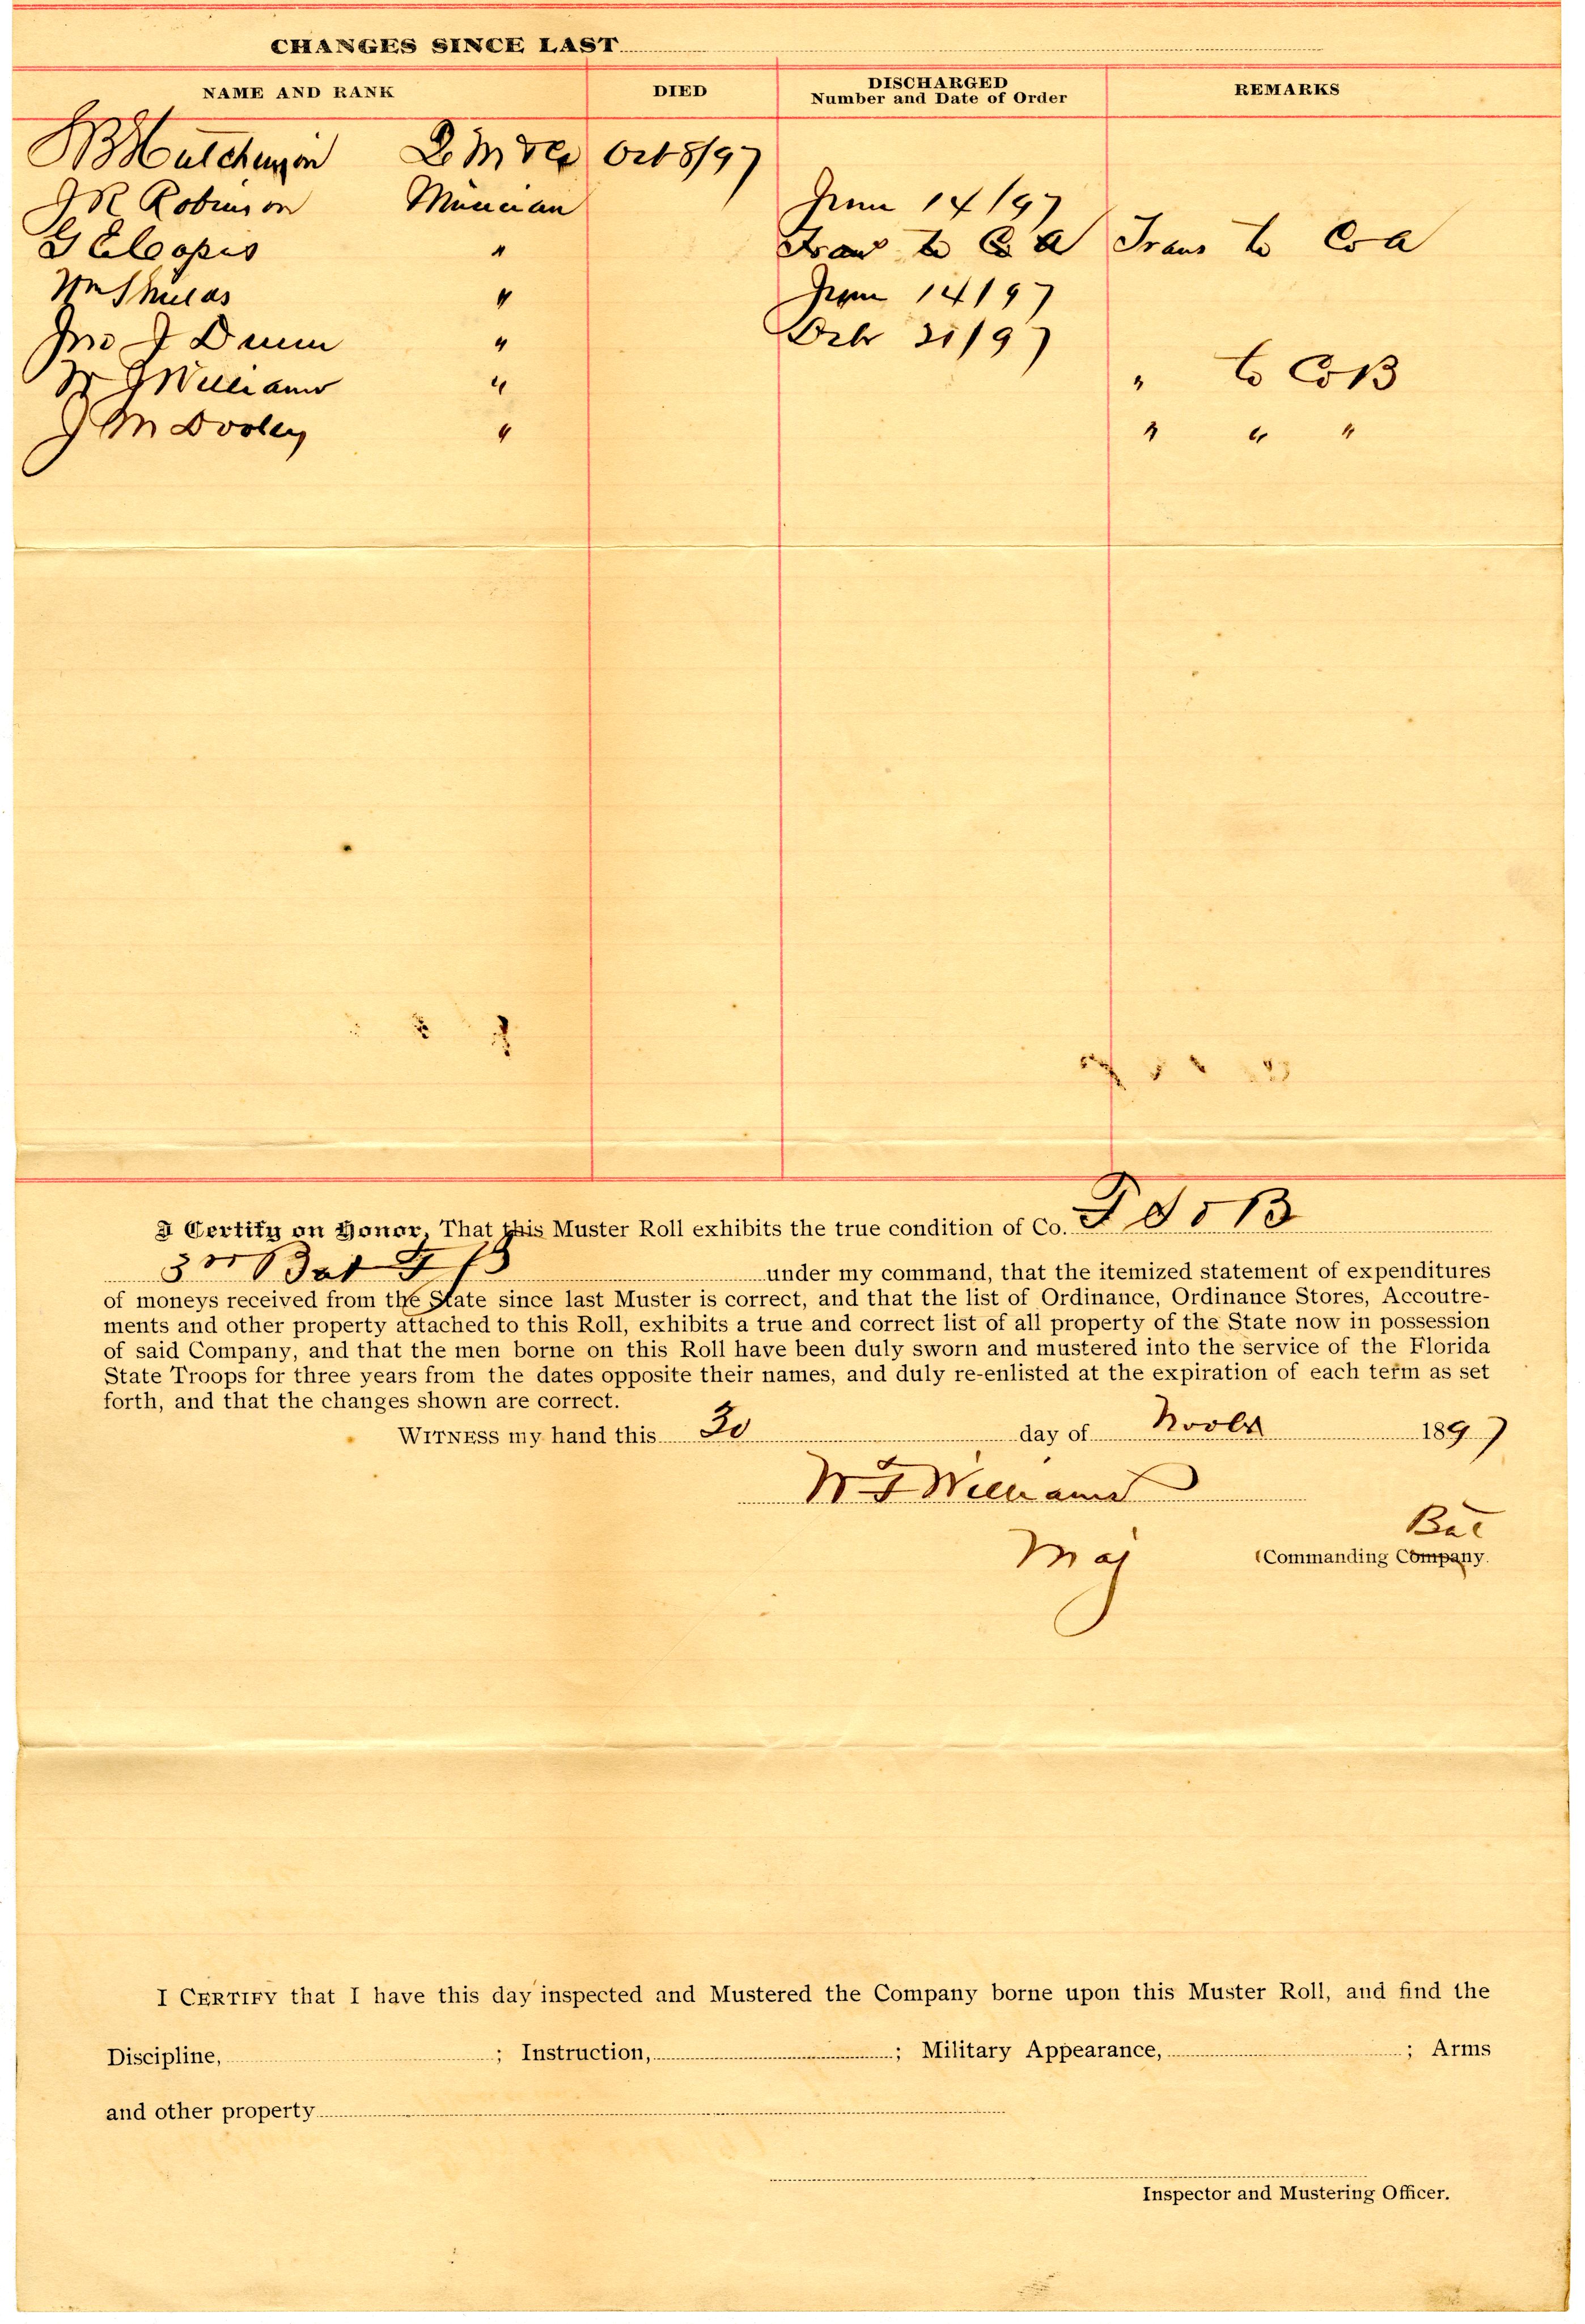 CHANGES SINCE LAST
NAME AND RANK DIED DISCHARGED Number and Date of Order REMARKS
Hutchinson Oct 8/97
J R Robinson Musician June 14/97
G E " Trans to Co A Trans to Co A
Wm Shields " June 14/97
Jno J Dunn " 31/97
Williams " " to Co B
J M Dooley " " " "
I Certify on Honor, That this Muster Roll exhibits the true condition of Co. F S & B
3rd Bat F under my command, that the itemized statement of expenditures
of moneys received from the State since last Muster is correct, and that the list of Ordinance, Ordinance Stores, Accoutre-
ments and other property attached to this Roll, exhibits a true and correct list of all property of the State now in possession
of said Company, and that the men borne on this Roll have been duly sworn and mustered into the service of the Florida
State Troops for three years from the dates opposite their names, and duly re-enlisted at the expiration of each term as set
forth, and that the changes shown are correct.
WITNESS my hand this 30 day of Novbr 1897
W F Williams
Bat
Maj (Commanding Company.
I CERTIFY that I have this day inspected and Mustered the Company borne upon this Muster Roll, and find the
Discipline, ; Instruction, ; Military Appearance, ; Arms
and other property
Inspector and Mustering Officer.